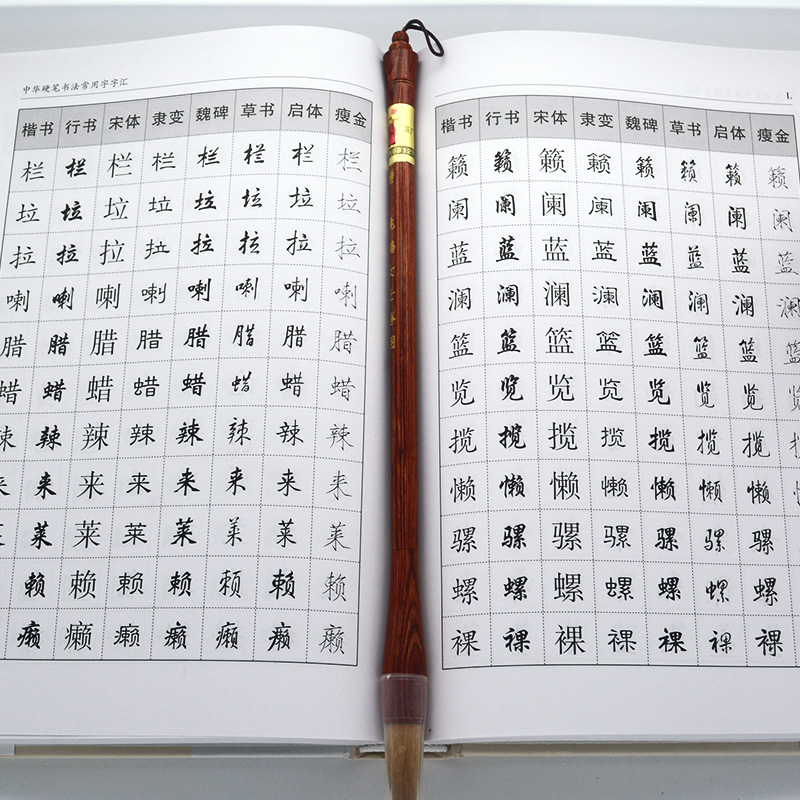 中华硬笔书法常用字字汇
楷书 行书 宋体 隶变 魏碑 草书 启体 瘦金
栏 栏 栏 栏 栏 栏 栏 栏
垃 垃 垃 垃 垃 垃 垃 垃
拉 拉 拉 拉 拉 拉 拉 拉
喇 喇 喇 喇 喇 喇 喇 喇
腊 腊 腊 腊 腊 腊 腊 腊
蜡 蜡 蜡 蜡 蜡 蜡 蜡 蜡
辣 辣 辣 辣 辣 辣 辣 辣
来 来 来 来 来 来 来 来
莱 莱 莱 莱 莱 莱 莱
赖 赖 赖 赖 赖 赖 赖
癞 癞 癞 癞 癞 癞 癞
L
楷书 行书 宋体 隶变 魏碑 草书 启体 瘦金
籁 籁 籁 籁 籁 籁 籁 籁
阑 阑 阑 阑 阑 阑 阑 阑
蓝 蓝 蓝 蓝 蓝 蓝 蓝 蓝
澜 澜 澜 澜 澜 澜 澜 澜
篮 篮 篮 篮 篮 篮 篮 篮
览 览 览 览 览 览 览 览
揽 揽 揽 揽 揽 揽 揽
懒 懒 懒 懒 懒 懒 懒
骡 骡 骡 骡 骡 骡 骡
螺 螺 螺 螺 螺 螺 螺
裸 裸 裸 裸 裸 裸 裸